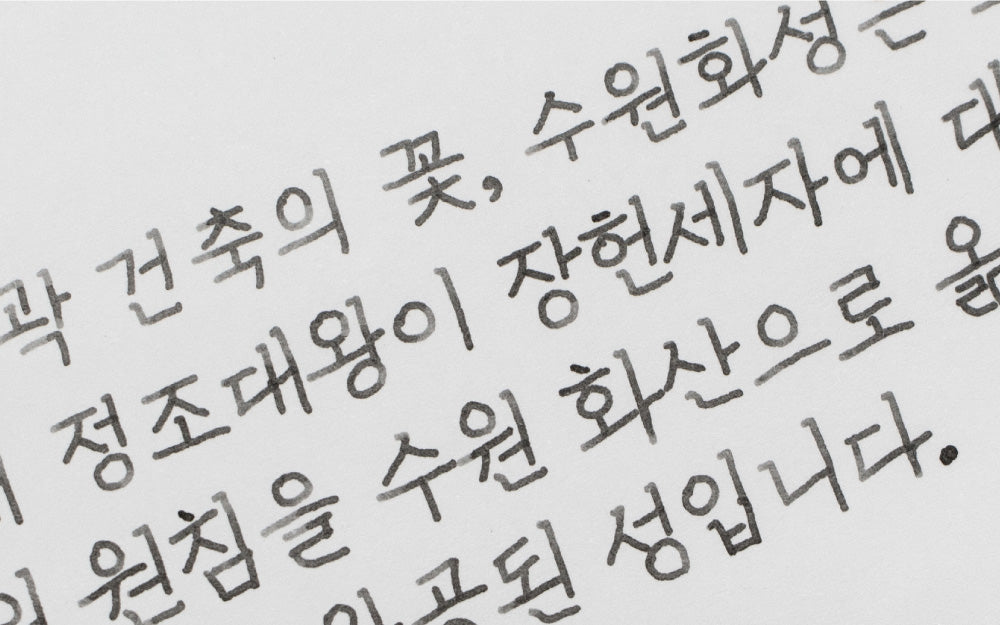 곽 건축의 꽃, 수원화성은
정조대왕이 장헌세자에 대
원침을 수원 화산으로 옮
공된 성입니다.